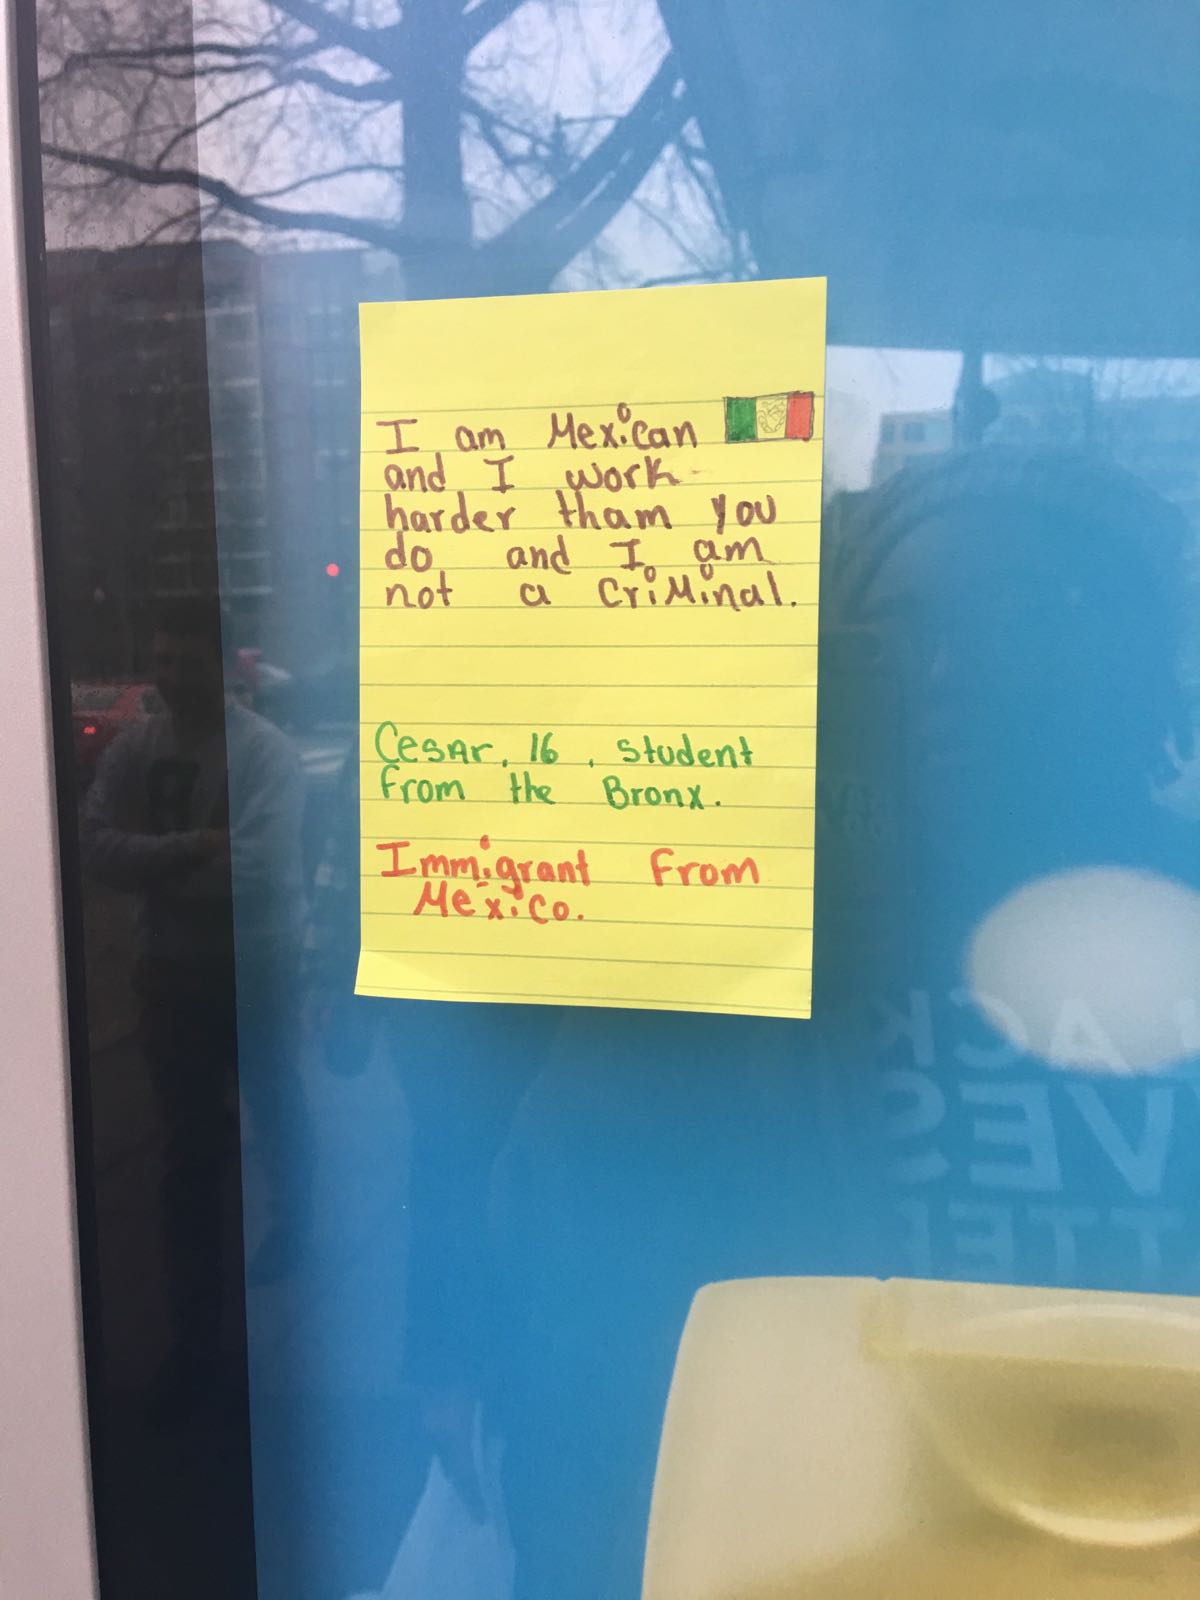 I am Mexican
and I work
harder tham you
do and I am
not a Criminal.
Cesar, 16, student
from the Bronx.
Immigrant from
Mexico.